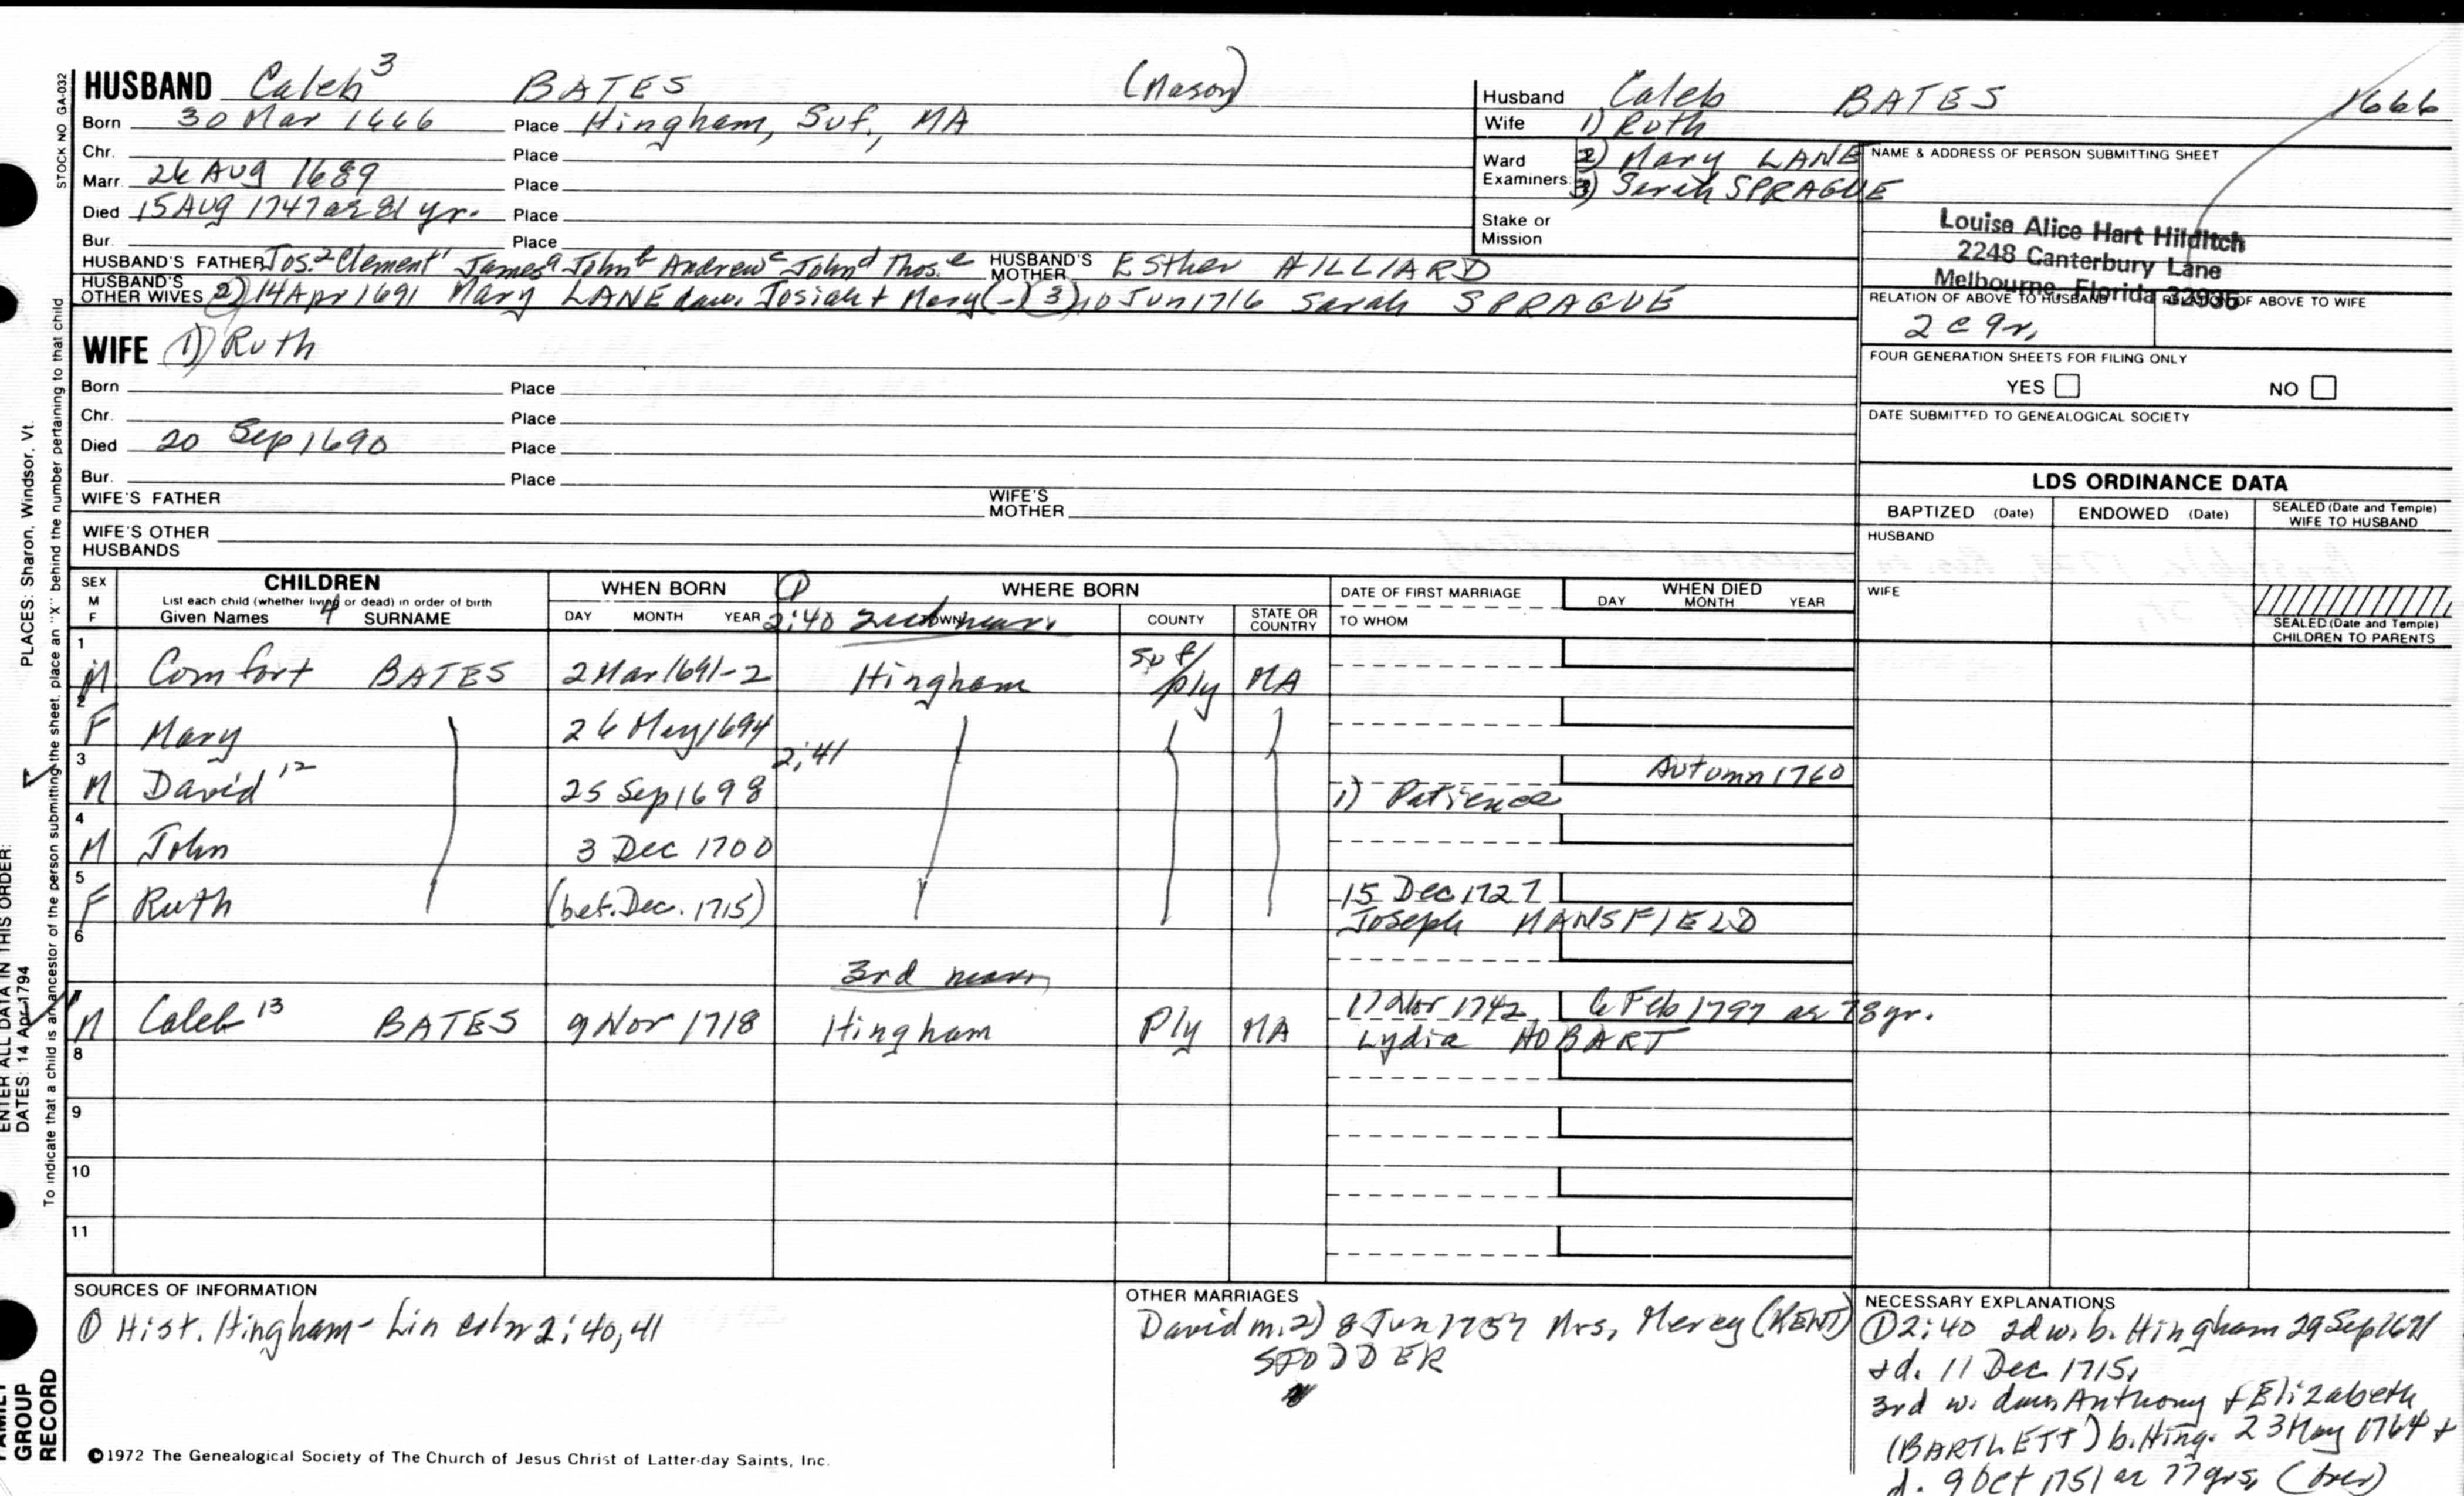 HUSBAND Caleb³ BATES (Mason)
Born 30 Mar 1666 Place Hingham, Suf., MA
Chr. Place
Marr. 26 Aug 1689 Place
Died 15 Aug 1747 ae 81 yr. Place
Bur. Place
HUSBAND'S FATHER Jos.² Clement¹ Jamesᵃ Johnᵇ Andrewᶜ Johnᵈ Thos.ᵉ HUSBAND'S MOTHER Esther HILLIARD
HUSBAND'S OTHER WIVES 2) 14 Apr 1691 Mary LANE dau. Josiah + Mary (-) 3) 10 Jun 1716 Sarah SPRAGUE
WIFE 1) Ruth
Born Place
Chr. Place
Died 20 Sep 1690 Place
Bur. Place
WIFE'S FATHER WIFE'S MOTHER
WIFE'S OTHER HUSBANDS
Husband Caleb BATES 1666
Wife 1) Ruth
Ward 2) Mary LANE
Examiners: 3) Sarah SPRAGUE
Stake or Mission
NAME & ADDRESS OF PERSON SUBMITTING SHEET
Louise Alice Hart Hilditch
2248 Canterbury Lane
Melbourne, Florida 32935
RELATION OF ABOVE TO HUSBAND RELATION OF ABOVE TO WIFE
2 c 9r.
FOUR GENERATION SHEETS FOR FILING ONLY
YES NO
DATE SUBMITTED TO GENEALOGICAL SOCIETY
LDS ORDINANCE DATA
BAPTIZED (Date) ENDOWED (Date) SEALED (Date and Temple) WIFE TO HUSBAND
HUSBAND
WIFE
SEALED (Date and Temple) CHILDREN TO PARENTS
SEX M F
CHILDREN
List each child (whether living or dead) in order of birth
Given Names 4 SURNAME
WHEN BORN
DAY MONTH YEAR
① WHERE BORN
2:40 2nd marr. TOWN COUNTY STATE OR COUNTRY
DATE OF FIRST MARRIAGE
TO WHOM
WHEN DIED
DAY MONTH YEAR
1 M Comfort BATES 2 Mar 1691-2 Hingham Suf/Ply MA
2 F Mary 26 May 1694
3 M David¹² 25 Sep 1698 2:41 1) Patience Autumn 1760
4 M John 3 Dec 1700
5 F Ruth (bef. Dec. 1715) 15 Dec 1727 Joseph MANSFIELD
6
3rd marr.
M Caleb¹³ BATES 9 Nov 1718 Hingham Ply MA 17 Nov 1742 Lydia HOBART 6 Feb 1797 ae 78 yr.
8
9
10
11
SOURCES OF INFORMATION
① Hist. Hingham - Lincoln 2:40,41
OTHER MARRIAGES
David m. 2) 8 Jun 1757 Mrs. Mercy (KENT)
STODDER
NECESSARY EXPLANATIONS
① 2:40 2d w. b. Hingham 29 Sep 1671
+ d. 11 Dec 1715.
3rd w. dau. Anthony + Elizabeth
(BARTLETT) b. Hing. 23 May 1764 +
d. 9 Oct 1751 ae 77 yrs. (over)
©1972 The Genealogical Society of The Church of Jesus Christ of Latter-day Saints, Inc.
STOCK NO GA-032
To indicate that a child is an ancestor of the person submitting the sheet, place an "X" behind the number pertaining to that child
PLACES: Sharon, Windsor, Vt.
ENTER ALL DATA IN THIS ORDER:
DATES: 14 Apr 1794
FAMILY
GROUP
RECORD